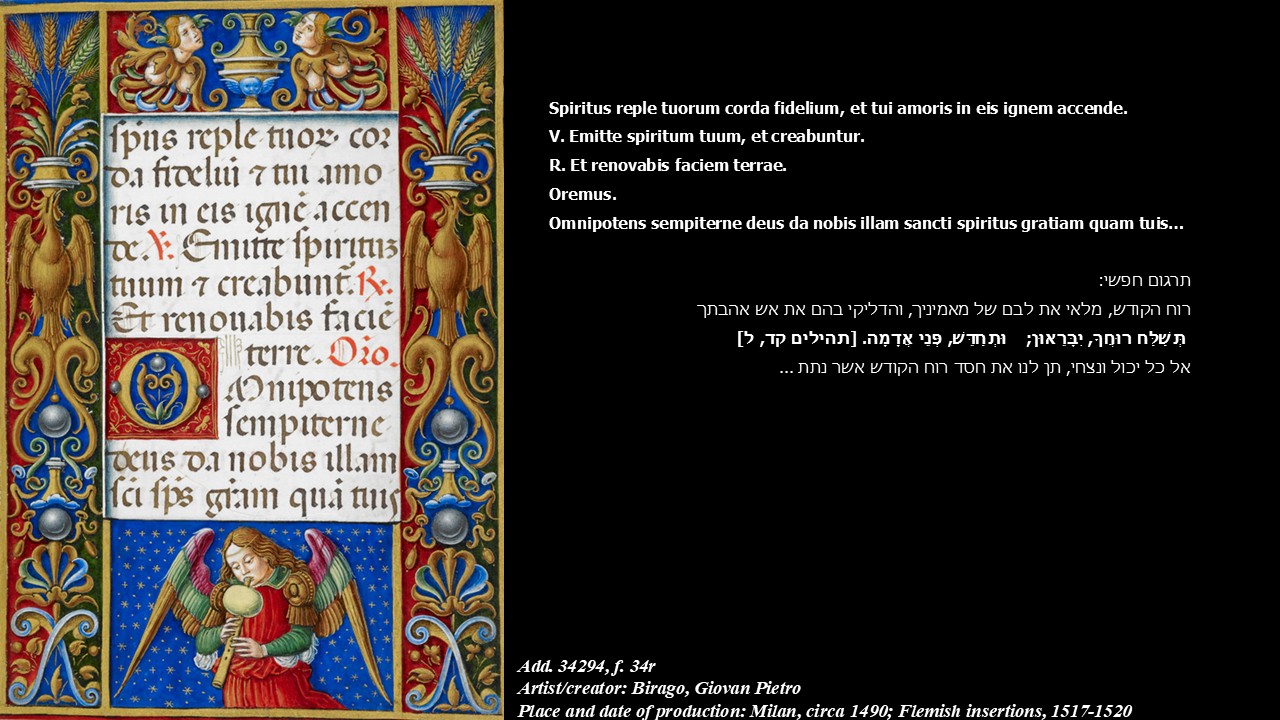 sp̄us reple tuoꝝ cor
da fideliū ⁊ tui amo
ris in eis ignē accen
de. ℣. Emitte spiritū
tuum ⁊ creabunt̄. ℟.
Et renouabis faciē
terre. Oro.
Omnipotens
sempiterne
deus da nobis illam
sc̄i sp̄s gr̄am quā tuis
Spiritus reple tuorum corda fidelium, et tui amoris in eis ignem accende.
V. Emitte spiritum tuum, et creabuntur.
R. Et renovabis faciem terrae.
Oremus.
Omnipotens sempiterne deus da nobis illam sancti spiritus gratiam quam tuis...
תרגום חפשי:
רוח הקודש, מלאי את לבם של מאמיניך, והדליקי בהם את אש אהבתך
תְּשַׁלַּח רוּחֲךָ, יִבָּרֵאוּן; וּתְחַדֵּשׁ, פְּנֵי אֲדָמָה. [תהילים קד, ל]
אל כל יכול ונצחי, תן לנו את חסד רוח הקודש אשר נתת ...
Add. 34294, f. 34r
Artist/creator: Birago, Giovan Pietro
Place and date of production: Milan, circa 1490; Flemish insertions, 1517-1520